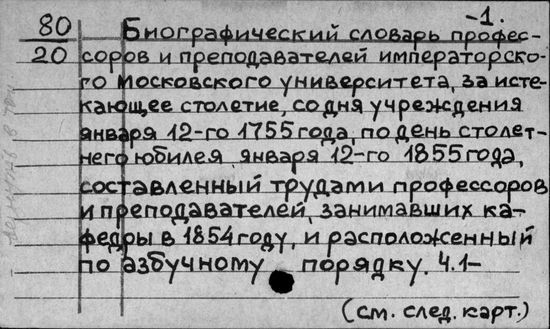 -1.
80 Биографический словарь профес-
20 соров и преподавателей императорско-
го Московского университета, за исте-
кающее столетие, со дня учреждения
января 12-го 1755 года, по день столет-
него юбилея января 12-го 1855 года,
составленный трудами профессоров
и преподавателей, занимавших ка-
федры в 1854 году, и расположенный
по азбучному порядку. Ч.1-
(см. след. карт.)